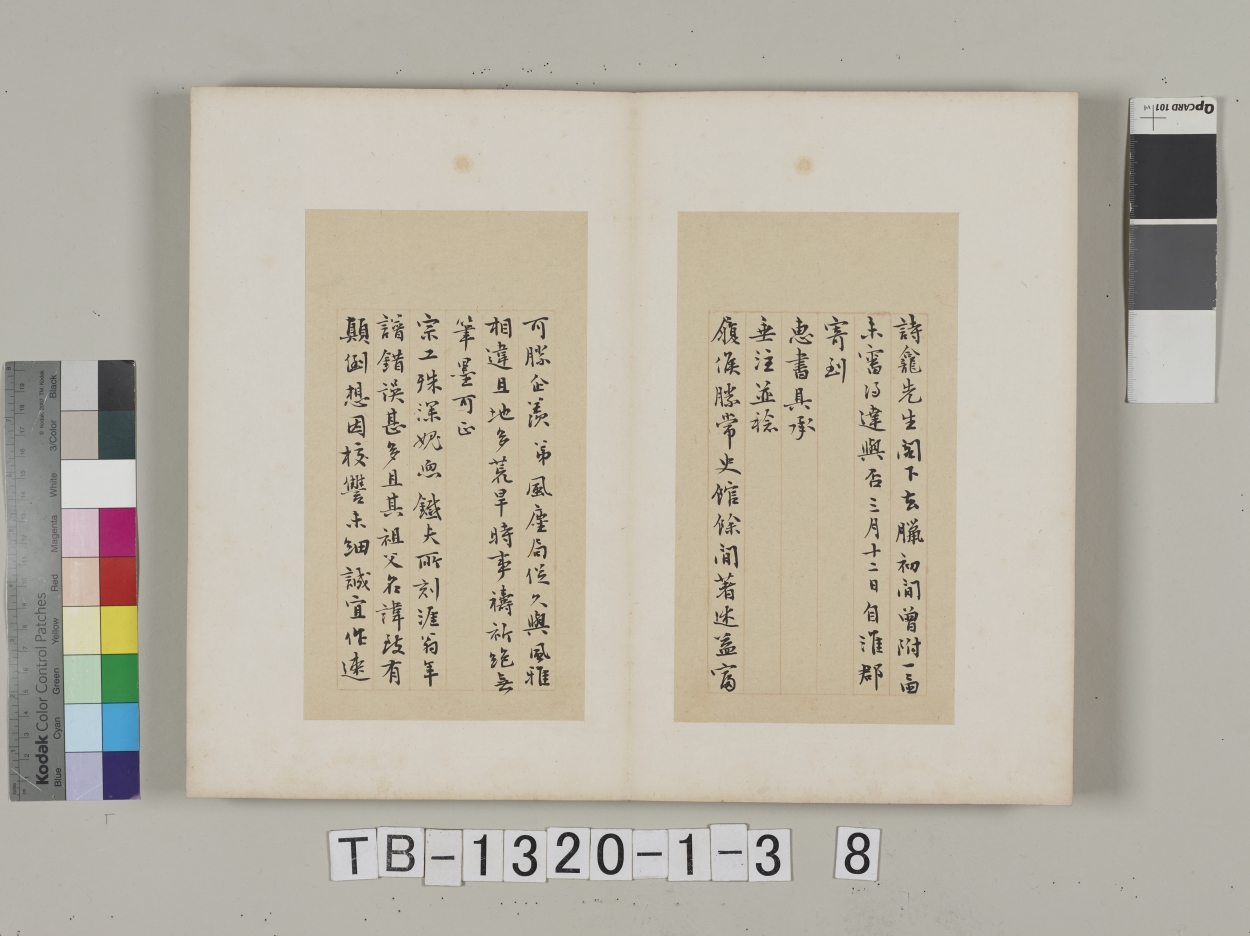 詩龕先生閣下去臘初間曾附一函
未審得達與否三月十二日自淮郡
寄到
惠書具承
垂注並稔
履候勝常史館餘閒著述益富
可勝企羨弟風塵局促久與風雅
相違且地多荒旱時事禱祈絕無
筆墨可正
宗工殊深愧恧鐵夫所刻涯翁年
譜錯誤甚多且其祖父名諱致有
顛倒想因校讐未細誠宜作速
TB-1320-1-3 8
Kodak Color Control Patches
Blue Cyan Green Yellow Red Magenta White 3/Color Black
QpCARD 101 v4